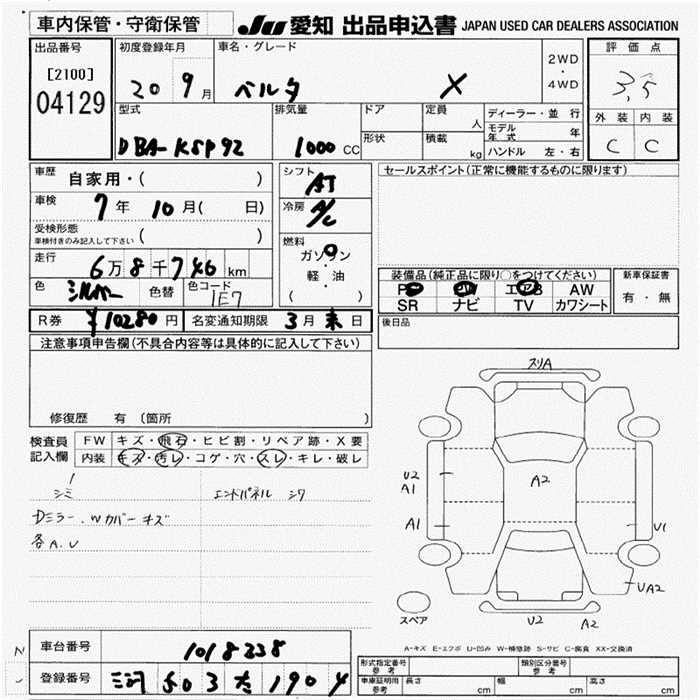 車内保管・守衛保管
JU 愛知 出品申込書 JAPAN USED CAR DEALERS ASSOCIATION
出品番号
[2100]
04129
初度登録年月
20 9月
車名・グレード
ベルタ X
2WD
・
4WD
評価点
3.5
外装 内装
C C
型式
DBA-KSP92
排気量
1000 CC
ドア
形状
定員
人
積載
kg
ディーラー・並行
モデル年式 年
ハンドル 左・右
車歴
自家用・( )
車検
7年 10月( 日)
受検形態
車検付きのみ記入して下さい ( )
走行
6万8千746km
色
シルバー
色替
色コード
1E7
シフト
AT
冷房
A/C
燃料
ガソリン
・
軽・油
( )
セールスポイント(正常に機能するものに限ります)
装備品(純正品に限り○をつけてください)
PS PW エアB AW
SR ナビ TV カワシート
新車保証書
有・無
後日品
R券 ¥10280円
名変通知期限 3月末日
注意事項申告欄(不具合内容等は具体的に記入して下さい)
修復歴 有 〔箇所 〕
検査員
記入欄
FW キズ・飛石・ヒビ割・リペア跡・X要
内装 キズ・汚レ・コゲ・穴・スレ・キレ・破レ
シミ
エンドパネル シワ
Dミラー.Wカバーキズ
各A.U
スリA
A2
U2
A1
A1
U1
UA2
U2
A2
スペア
A-キズ E-エクボ U-凹み W-補修跡 S-サビ C-腐食 XX-交換済
車台番号
1018238
登録番号
三河 503 た 1904
形式指定番号
参考
類別区分番号
参考
車庫証明用
参考
長さ cm
幅 cm
高さ cm